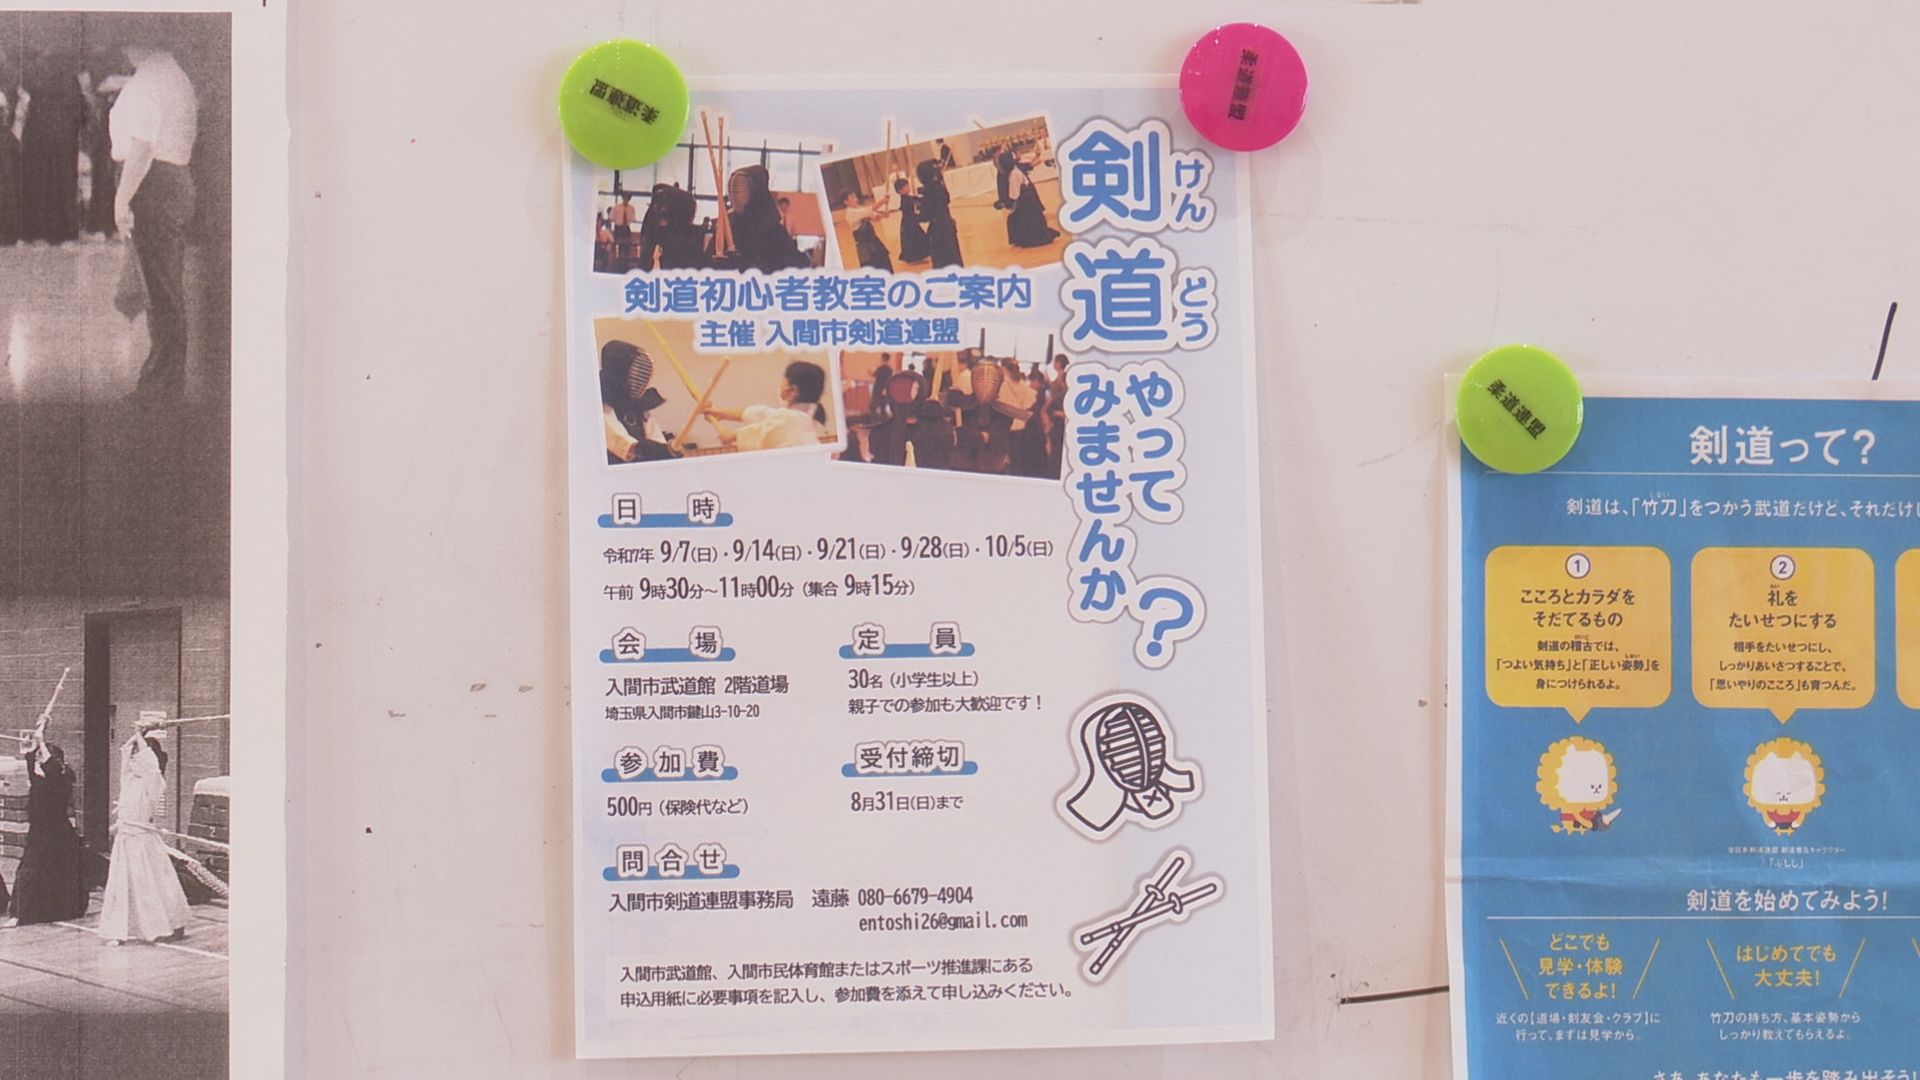 柔道連盟
柔道連盟
剣道やってみませんか?
けんどう
剣道初心者教室のご案内
主催 入間市剣道連盟
日時
令和7年 9/7(日)・9/14(日)・9/21(日)・9/28(日)・10/5(日)
午前 9時30分～11時00分（集合 9時15分）
会場
入間市武道館 2階道場
埼玉県入間市鍵山3-10-20
定員
30名（小学生以上）
親子での参加も大歓迎です！
参加費
500円（保険代など）
受付締切
8月31日(日)まで
問合せ
入間市剣道連盟事務局 遠藤 080-6679-4904
entoshi26@gmail.com
入間市武道館、入間市民体育館またはスポーツ推進課にある
申込用紙に必要事項を記入し、参加費を添えて申し込みください。
柔道連盟
剣道って？
剣道は、「竹刀」をつかう武道だけど、それだけ
しない
1
こころとカラダを
そだてるもの
剣道の稽古では、
けいこ
「つよい気持ち」と「正しい姿勢」を
しせい
身につけられるよ。
2
礼を
れい
たいせつにする
相手をたいせつにし、
しっかりあいさつすることで、
「思いやりのこころ」も育つんだ。
全日本剣道連盟 剣道普及キャラクター
「ししし」
剣道を始めてみよう！
どこでも
見学・体験
できるよ！
近くの【道場・剣友会・クラブ】に
行って、まずは見学から。
はじめてでも
大丈夫！
竹刀の持ち方、基本姿勢から
しっかり教えてもらえるよ。
さあ、あなたも一歩を踏み出そう！